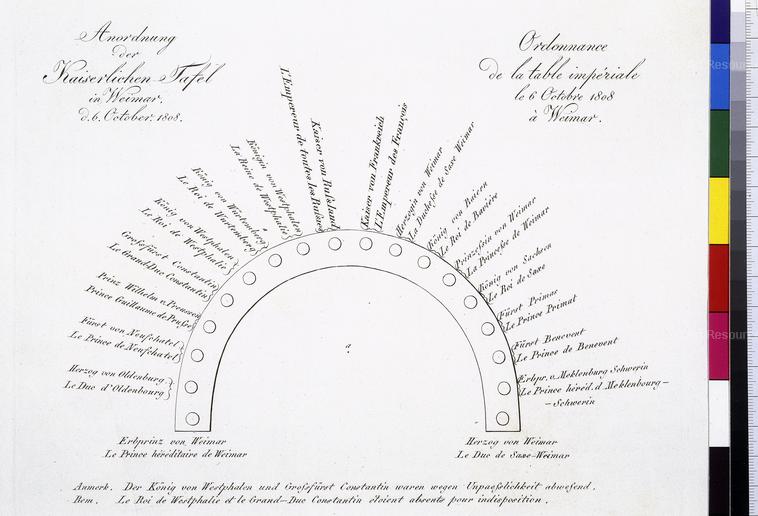 Anordnung
der
Kaiserlichen Tafel
in Weimar.
d. 6. October. 1808.
Ordonnance
de la table impériale
le 6 Octobre 1808
à Weimar.
Erbprinz von Weimar
Le Prince héréditaire de Weimar
Herzog von Oldenburg
Le Duc d'Oldenbourg
Fürst von Neufschatel
Le Prince de Neufschatel
Prinz Wilhelm v. Preussen
Prince Guillaume de Prusse
Grofsfürst Constantin
Le Grand-Duc Constantin
König von Westphalen
Le Roi de Westphalie
König von Würtemberg
Le Roi de Würtemberg
Königin von Westphalen
La Reine de Westphalie
L'Empereur de toutes les Russies
Kaiser von Rufsland
Kaiser von Frankreich
L'Empereur des François
Herzogin von Weimar
La Duchesse de Saxe Weimar
König von Baiern
Le Roi de Bavière
Prinzessin von Weimar
La Princesse de Weimar
König von Sachsen
Le Roi de Saxe
Fürst Primas
Le Prince Primat
Fürst Benevent
Le Prince de Benevent
Erbpr. v. Meklenburg Schwerin
Le Prince héréd. d. Meklenbourg-
-Schwerin
Herzog von Weimar
Le Duc de Saxe-Weimar
a
Anmerk. Der König von Westphalen und Grofsfürst Constantin waren wegen Unpaefslichkeit abwesend.
Rem. Le Roi de Westphalie et le Grand-Duc Constantin étoient absents pour indisposition.